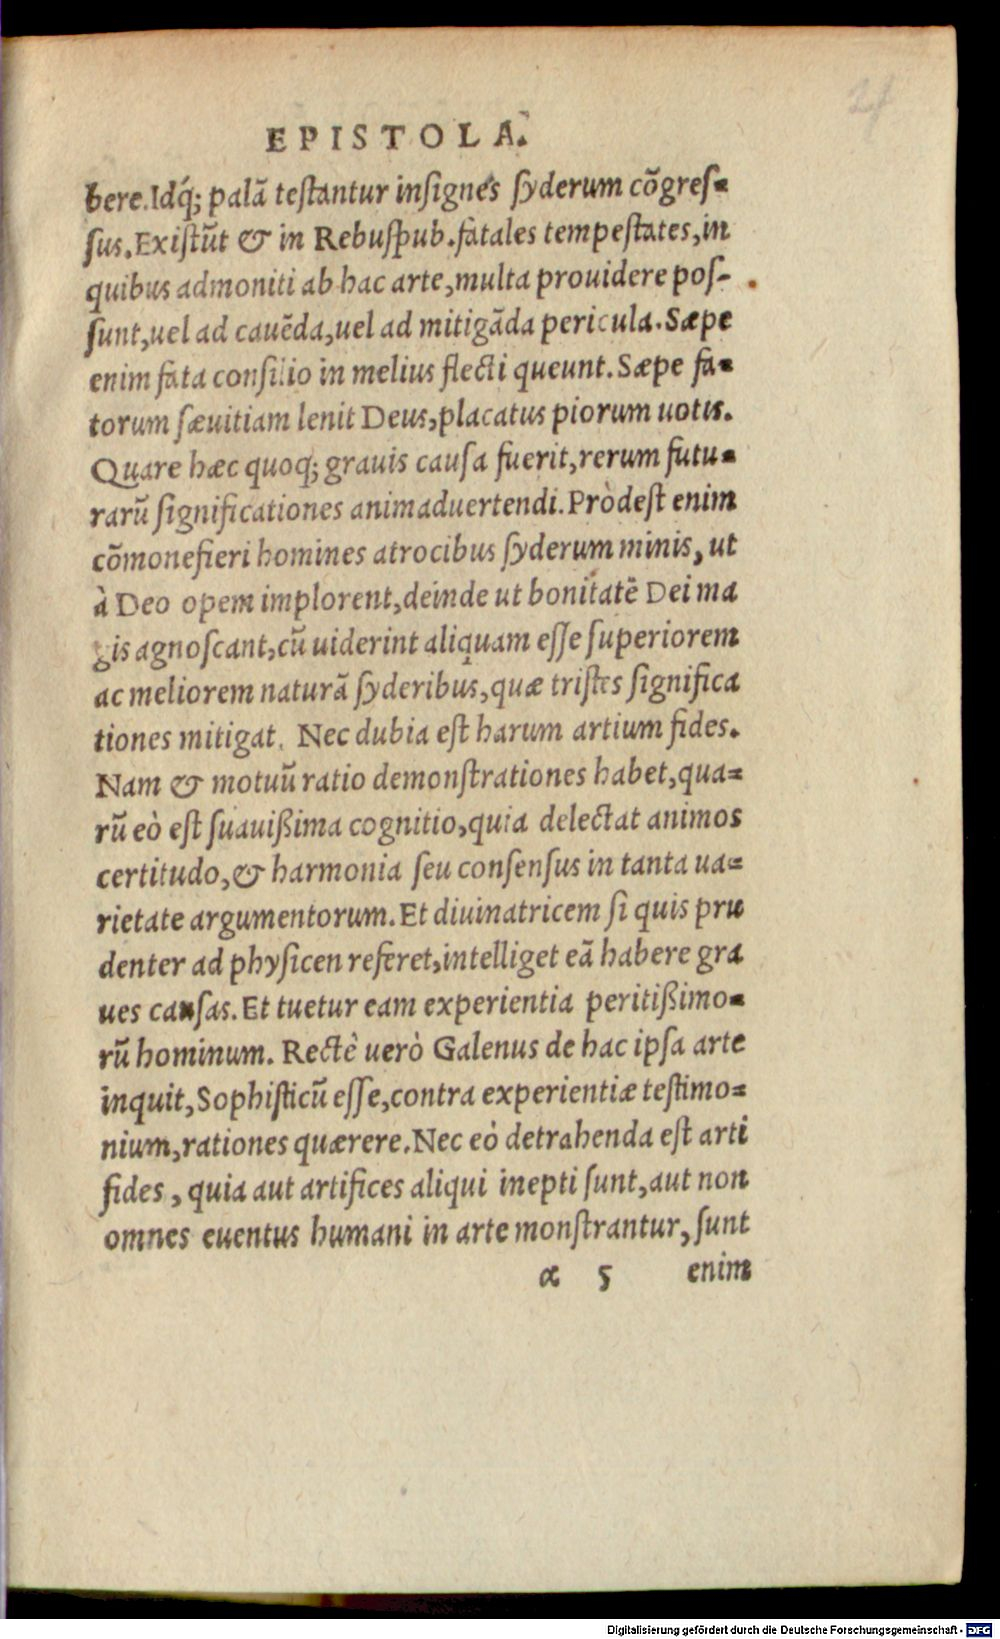 24
EPISTOLA.
bere. Idq́; palā testantur insignes syderum cōgres-
sus. Existūt & in Rebuspub. fatales tempestates, in
quibus admoniti ab hac arte, multa prouidere pos-
sunt, uel ad cauēda, uel ad mitigāda pericula. Sæpe
enim fata consilio in melius flecti queunt. Sæpe fa-
torum sæuitiam lenit Deus, placatus piorum uotis.
Quare hæc quoq; grauis causa fuerit, rerum futu-
rarū significationes animaduertendi. Pròdest enim
cōmonefieri homines atrocibus syderum minis, ut
à Deo opem implorent, deinde ut bonitatē Dei ma
gis agnoscant, cū uiderint aliquam esse superiorem
ac meliorem naturā syderibus, quæ tristes significa
tiones mitigat. Nec dubia est harum artium fides.
Nam & motuū ratio demonstrationes habet, qua-
rū eò est suauißima cognitio, quia delectat animos
certitudo, & harmonia seu consensus in tanta ua-
rietate argumentorum. Et diuinatricem si quis pru
denter ad physicen referet, intelliget eā habere gra
ues causas. Et tuetur eam experientia peritißimo-
rū hominum. Rectè uerò Galenus de hac ipsa arte
inquit, Sophisticū esse, contra experientiæ testimo-
nium, rationes quærere. Nec eò detrahenda est arti
fides, quia aut artifices aliqui inepti sunt, aut non
omnes euentus humani in arte monstrantur, sunt
α 5 enim
Digitalisierung gefördert durch die Deutsche Forschungsgemeinschaft - DFG